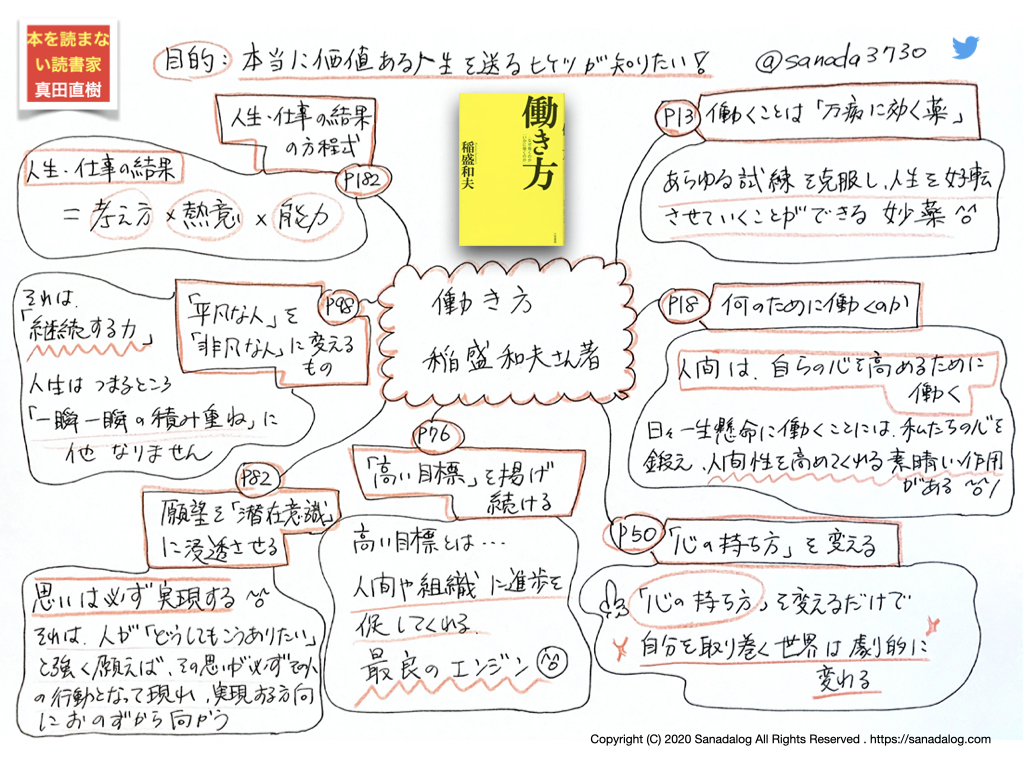 本を読まな
い読書家
真田直樹
目的：本当に価値ある人生を送るヒケツが知りたい！
@sanada3730
働き方
稲盛和夫
働き方
稲盛和夫さん著
P13
働くことは「万病に効く薬」
あらゆる試練を克服し、人生を好転
させていくことができる 妙薬
P18
何のために働くのか
人間は、自らの心を高めるために
働く
日々一生懸命に働くことには、私たちの心を
鍛え、人間性を高めてくれる素晴しい作用
がある
P50
「心の持ち方」を変える
「心の持ち方」を変えるだけで
自分を取り巻く世界は劇的に
変わる
P76
「高い目標」を掲げ
続ける
高い目標とは…
人間や組織に進歩を
促してくれる
最良のエンジン
P82
願望を「潜在意識」
に浸透させる
思いは必ず実現する
それは、人が「どうしてもこうありたい」
と強く願えば、その思いが必ずその人
の行動となって現れ、実現する方向
におのずから向かう
P98
「平凡な人」を
「非凡な人」に変える
もの
それは、
「継続する力」
人生はつまるところ
「一瞬一瞬の積み重ね」に
他なりません
P182
人生・仕事の結果
の方程式
人生・仕事の結果
＝考え方×熱意×能力
Copyright (C) 2020 Sanadalog All Rights Reserved . https://sanadalog.com